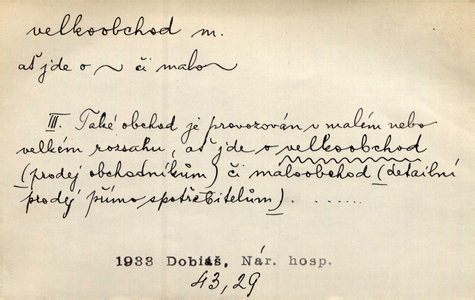 velkoobchod m.
ať jde o ~ či malo~
III. Také obchod je provozován v malém nebo
velkém rozsahu, ať jde o velkoobchod
(prodej obchodníkům) či maloobchod (detailní
prodej přímo spotřebitelům). . . . . . .
1933 Dobiáš, Nár. hosp.
43,29